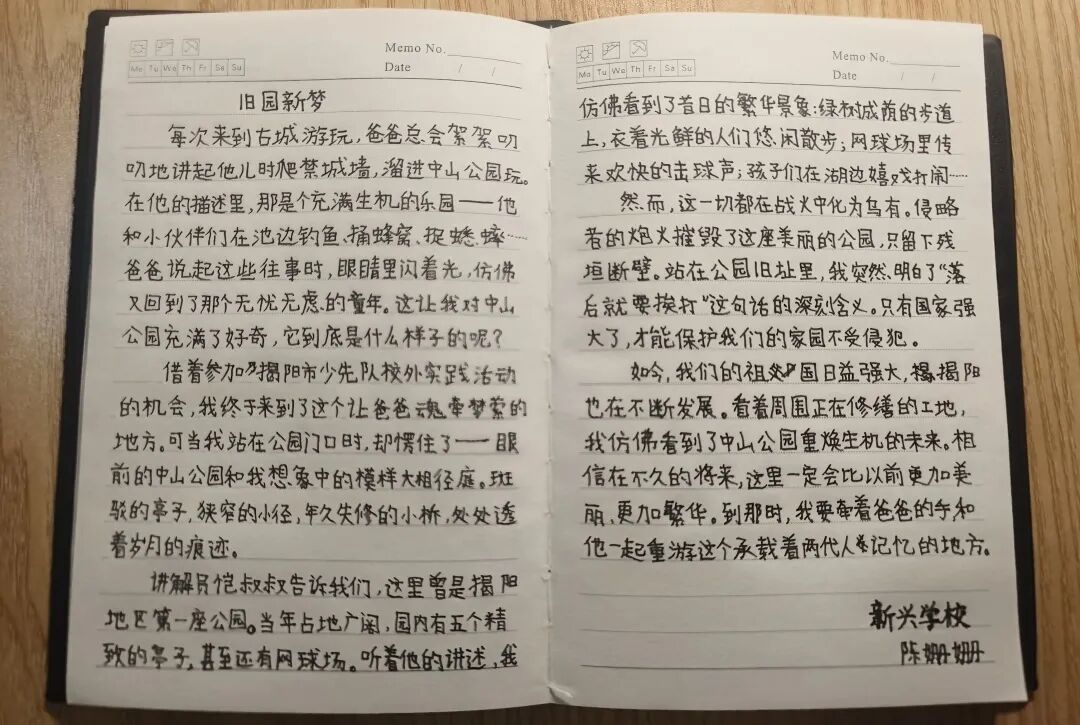 Memo No.
Mo Tu We Th Fr Sa Su
Date / /
旧园新梦
每次来到古城游玩，爸爸总会絮絮叨
叨地讲起他儿时爬禁城墙，溜进中山公园玩。
在他的描述里，那是个充满生机的乐园——他
和小伙伴们在池边钓鱼、捅蜂窝、捉蟋蟀……
爸爸说起这些往事时，眼睛里闪着光，仿佛
又回到了那个无忧无虑的童年。这让我对中山
公园充满了好奇，它到底是什么样子的呢？
借着参加揭阳市少先队校外实践活动
的机会，我终于来到了这个让爸爸魂牵梦萦的
地方。可当我站在公园门口时，却愣住了——眼
前的中山公园和我想象中的模样大相径庭。斑
驳的亭子，狭窄的小径，年久失修的小桥，处处透
着岁月的痕迹。
讲解员恺叔叔告诉我们，这里曾是揭阳
地区第一座公园。当年占地广阔，园内有五个精
致的亭子，甚至还有网球场。听着他的讲述，我
Memo No.
Mo Tu We Th Fr Sa Su
Date / /
仿佛看到了昔日的繁华景象：绿树成荫的步道
上，衣着光鲜的人们悠闲散步；网球场里传
来欢快的击球声；孩子们在湖边嬉戏打闹……
然而，这一切都在战火中化为乌有。侵略
者的炮火摧毁了这座美丽的公园，只留下残
垣断壁。站在公园旧址里，我突然明白了“落
后就要挨打”这句话的深刻含义。只有国家强
大了，才能保护我们的家园不受侵犯。
如今，我们的祖国日益强大，揭阳
也在不断发展。看着周围正在修缮的工地，
我仿佛看到了中山公园重焕生机的未来。相
信在不久的将来，这里一定会比以前更加美
丽、更加繁华。到那时，我要牵着爸爸的手，和
他一起重游这个承载着两代人记忆的地方。
新兴学校
陈姗姗